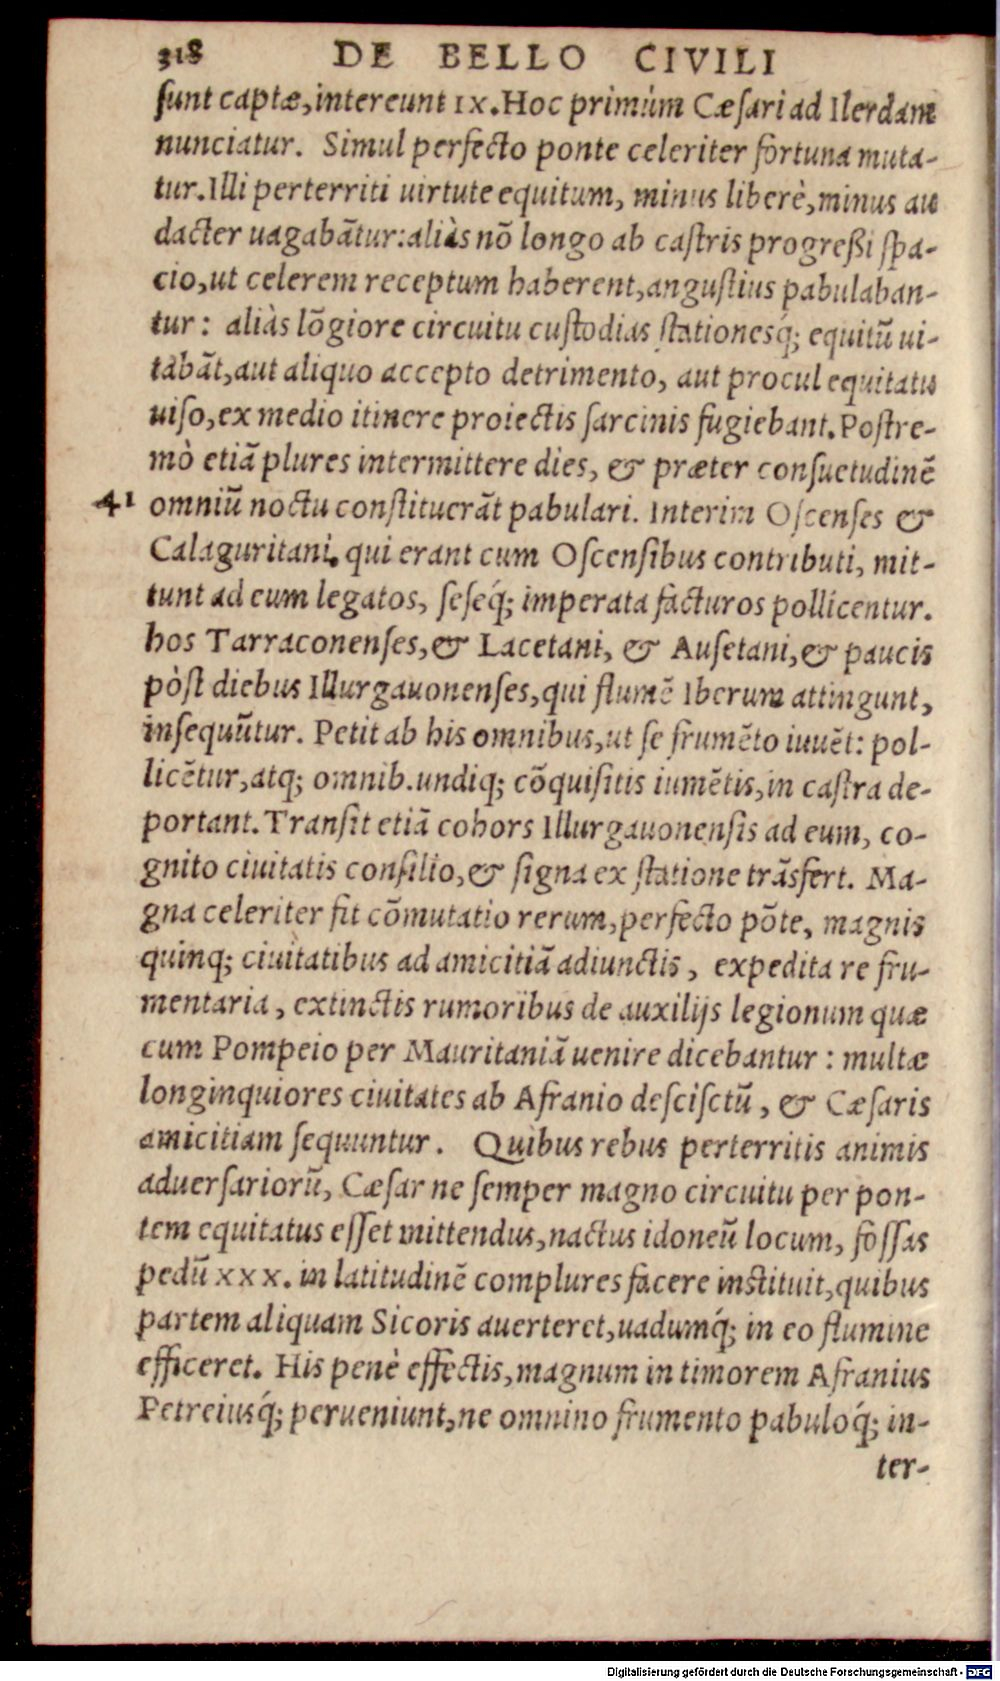 318 DE BELLO CIVILI
ſunt captæ, intereunt IX. Hoc primùm Cæſari ad Ilerdam
nunciatur. Simul perfecto ponte celeriter fortuna muta-
tur. Illi perterriti uirtute equitum, minus liberè, minus au
dacter uagabãtur: aliàs nõ longo ab caſtris progreßi ſpa-
cio, ut celerem receptum haberent, anguſtius pabulaban-
tur: aliàs lõgiore circuitu cuſtodias ſtationesq́; equitũ ui-
tabãt, aut aliquo accepto detrimento, aut procul equitatu
uiſo, ex medio itinere proiectis ſarcinis fugiebant. Poſtre-
mò etiã plures intermittere dies, & præter conſuetudinẽ
41 omniũ noctu conſtituerãt pabulari. Interim Oſcenſes &
Calaguritani, qui erant cum Oſcenſibus contributi, mit-
tunt ad eum legatos, ſeſeq́; imperata facturos pollicentur.
hos Tarraconenſes, & Lacetani, & Auſetani, & paucis
pòſt diebus Illurgauonenſes, qui flumẽ Iberum attingunt,
inſequũtur. Petit ab his omnibus, ut ſe frumẽto iuuẽt: pol-
licẽtur, atq; omnib. undiq; cõquiſitis iumẽtis, in caſtra de-
portant. Tranſit etiã cohors Illurgauonenſis ad eum, co-
gnito ciuitatis conſilio, & ſigna ex ſtatione trãsfert. Ma-
gna celeriter fit cõmutatio rerum, perfecto põte, magnis
quinq; ciuitatibus ad amicitiã adiunctis, expedita re fru-
mentaria, extinctis rumoribus de auxilijs legionum quæ
cum Pompeio per Mauritaniã uenire dicebantur: multæ
longinquiores ciuitates ab Afranio deſciſctũ, & Cæſaris
amicitiam ſequuntur. Quibus rebus perterritis animis
aduerſariorũ, Cæſar ne ſemper magno circuitu per pon-
tem equitatus eſſet mittendus, nactus idoneũ locum, foſſas
pedũ XXX. in latitudinẽ complures facere inſtituit, quibus
partem aliquam Sicoris auerteret, uadumq́; in eo flumine
efficeret. His penè effectis, magnum in timorem Afranius
Petreiusq́; perueniunt, ne omnino frumento pabuloq́; in-
ter-
Digitalisierung gefördert durch die Deutsche Forschungsgemeinschaft - DFG